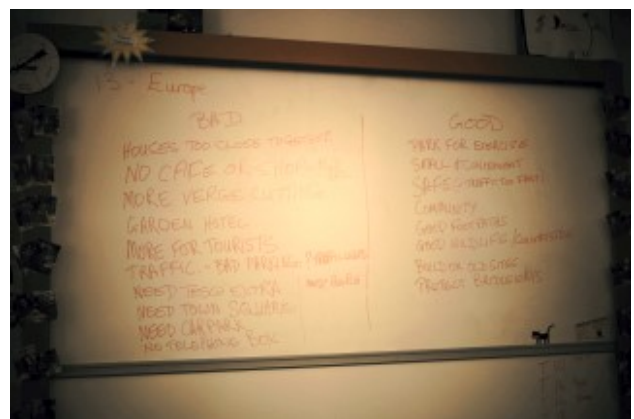 Europe
BAD
HOUSES TOO CLOSE TOGETHER
NO CAFE OR
MORE VERGE CUTTING
GARDEN HOTEL
MORE FOR TOURISTS
TRAFFIC - BAD PARKING
NEED TESCO EXTRA
NEED TOWN SQUARE
NEED CARPARK
NO TELEPHONE BOX
GOOD
PARK FOR EXERCISE
SMALL
SAFE - TRAFFIC
COMMUNITY
GOOD FOOTPATHS
GOOD WILDLIFE /
BUILD ON OLD SITES
PROTECT BRIDLEWAYS